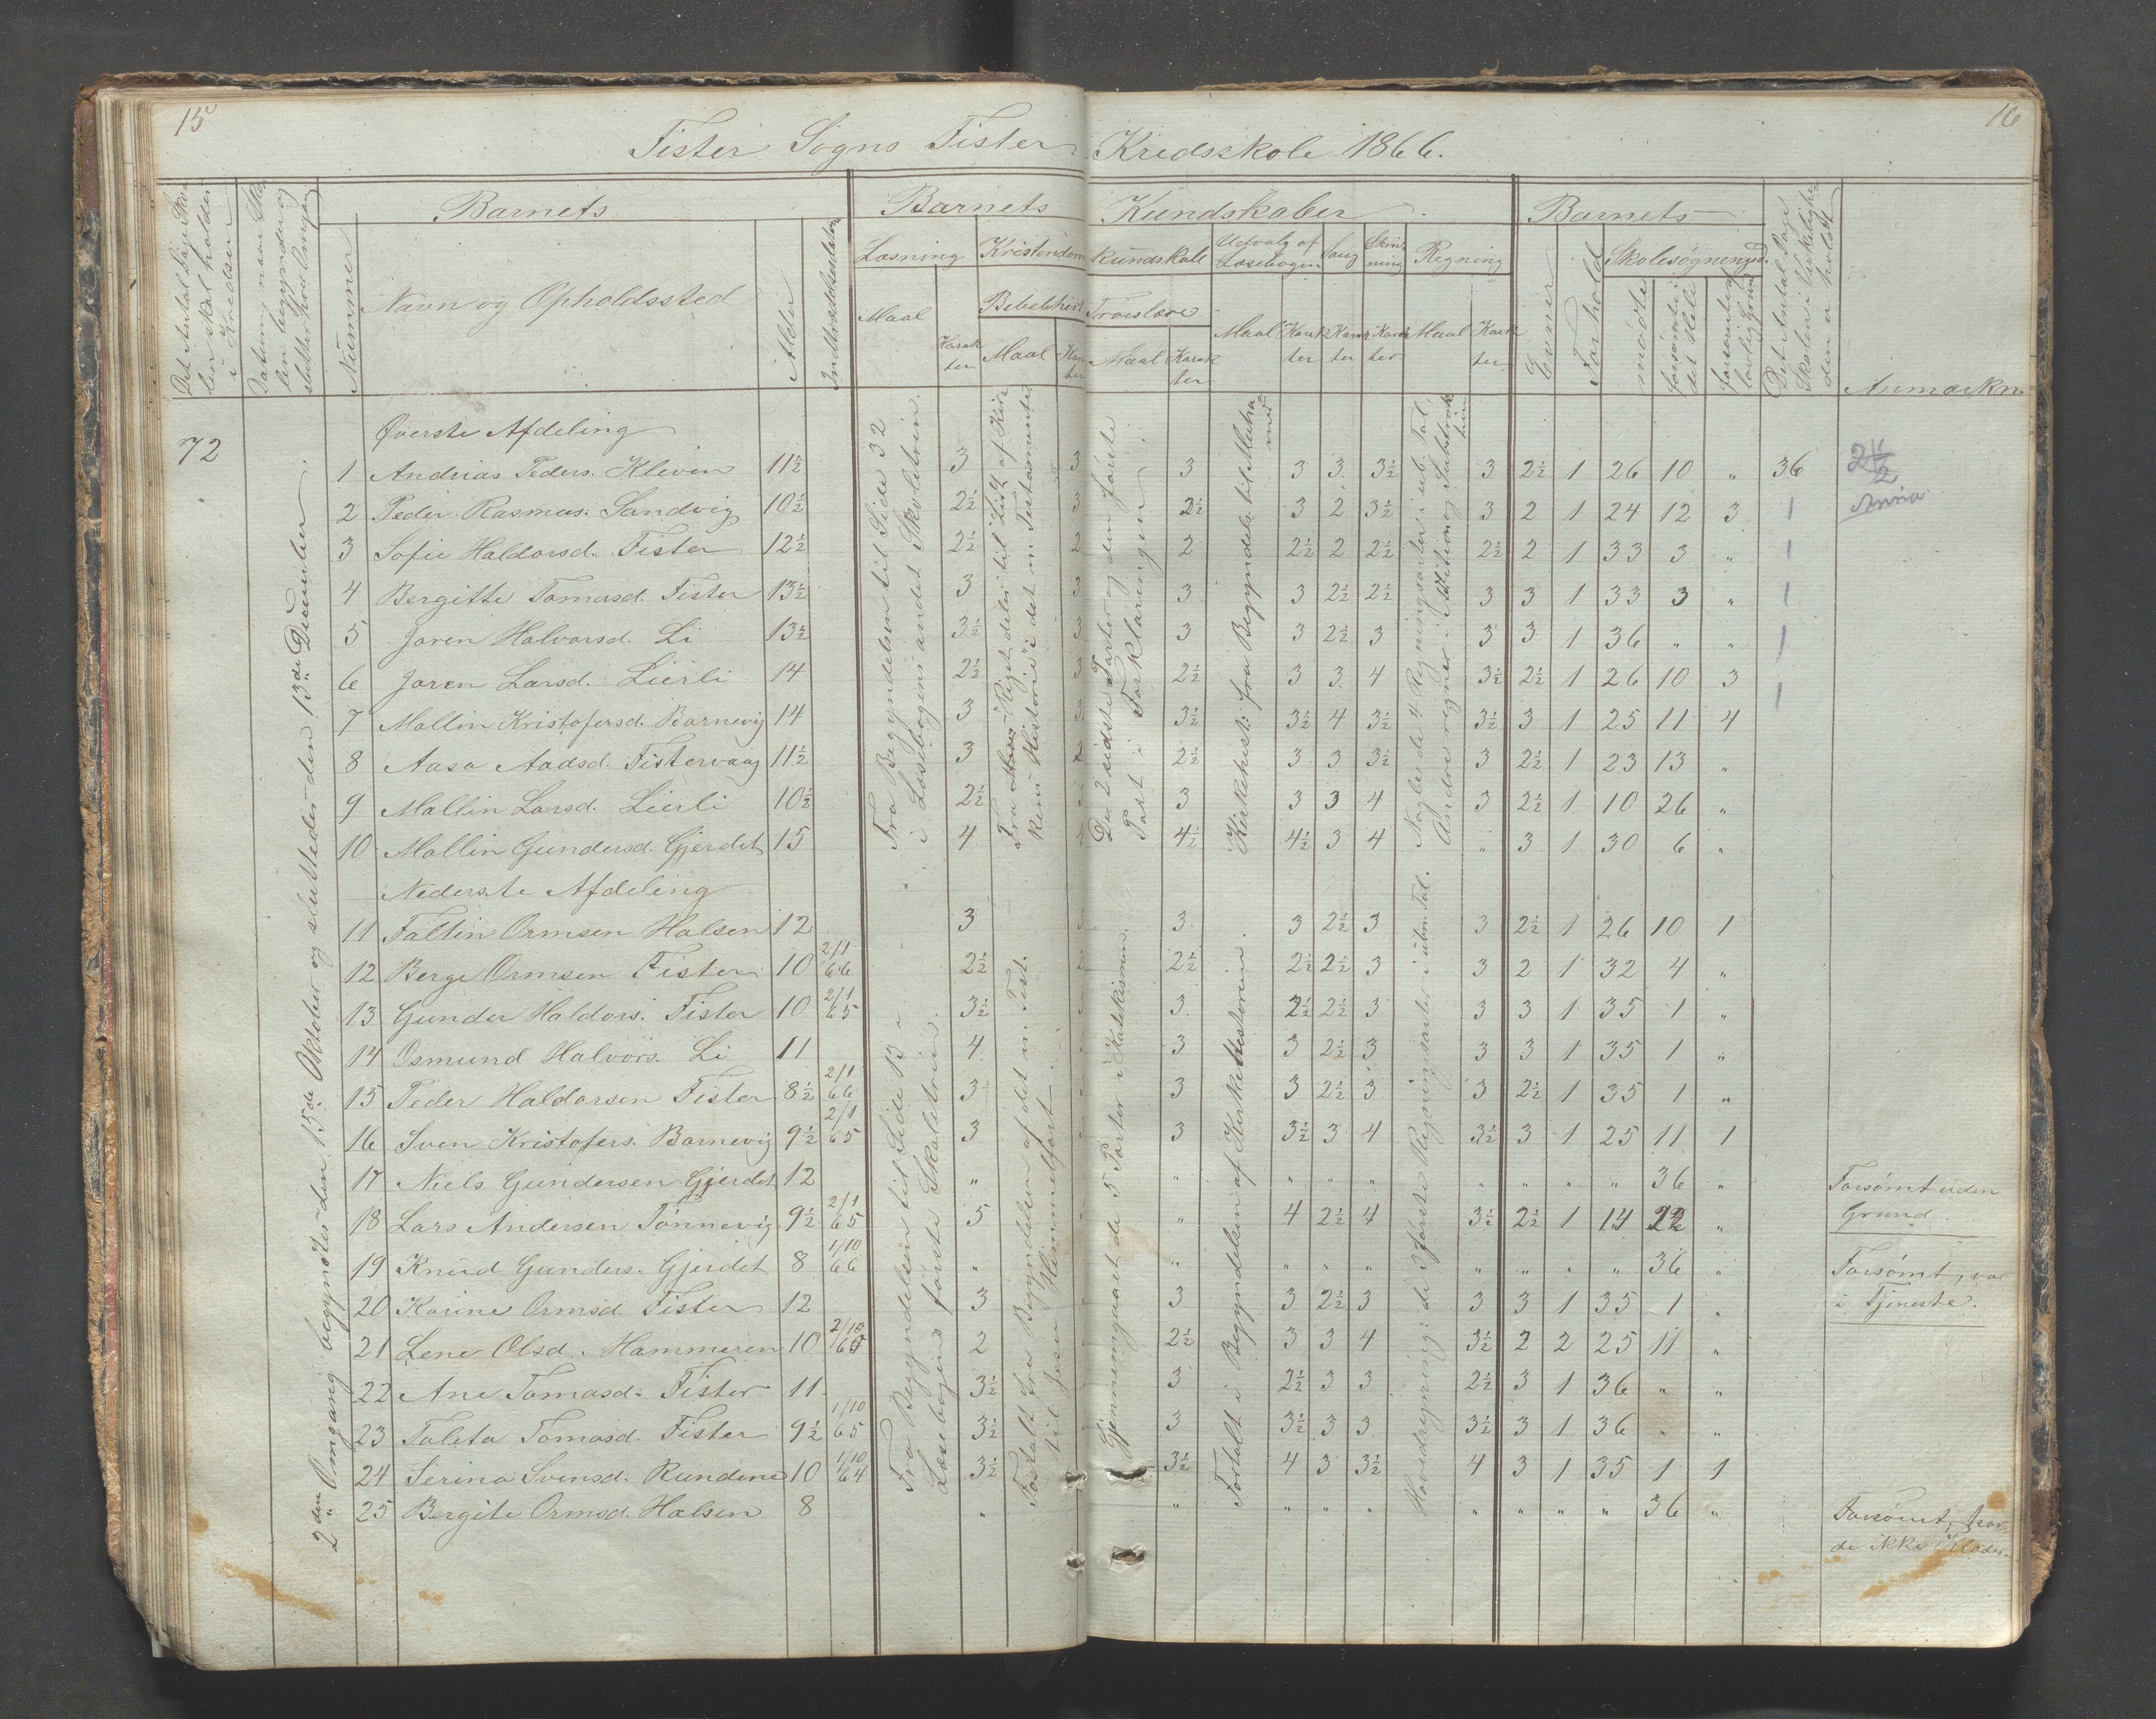 15
16
Fister Sogns Fister Kredsskole 1866.
Det Antal Dage Skolen skal holdes i Kredsen
Datum, naar Skolen begynder og slutter hver Omgang
Barnets
Nummer
Navn og Opholdssted
Alder
Indtrædelsesdatum
Barnets Kundskaber
Læsning
Maal
Karakter
Kristendomskundskab
Bibelhist
Maal
Karakter
Troeslære
Maal
Karakter
Udvalg af Læsebogen
Maal
Karakter
Sang
Karakter
Skrivning
Karakter
Regning
Maal
Karakter
Barnets
Evner
Forhold
Skolesøgningsd.
mødte
forsømte i det Hele
forsømte af lovlig Grund
Det Antal Dage Skolen i Virkelighe- den er holdt
Anmærkn.
72
2den Omgang begyndtes den 15de Oktober og sluttedes den 13de December.
Øverste Afdeling
1 Andreas Peders. Kleven 11½ 3 3 3 3 3 3½ 3 2½ 1 26 10 " 36
2 Peder Rasmus. Sandvig 10½ 2½ 3 2½ 3 2 3½ 3 2 1 24 12 3
3 Sofie Haldorsd. Fister 12½ 2½ 2 2 2½ 2 2½ 2½ 2 1 33 3 "
4 Bergitte Tomasd. Fister 13½ 3 3 3 3 2½ 2½ 3 3 1 33 3 "
5 Joren Halvorsd. Li 13½ 3½ 3 3 3 2½ 3 3 3 1 36 " "
6 Joren Larsd. Lierli 14 2½ 3 2½ 3 3 4 3½ 2½ 1 26 10 3
7 Mallin Kristofersd. Barnevig 14 3 3½ 3½ 4 3½ 3½ 3 1 25 11 4
8 Aasa Aadsd. Fistervaag 11½ 3 2½ 3 3 3½ 3 2½ 1 23 13 "
9 Mallin Larsd. Lierli 10½ 2½ 3 3 3 4 3 2½ 1 10 26 "
10 Mallin Gundersd. Gjerdet 15 4 4 4½ 4½ 3 4 " 3 1 30 6 "
Fra Begyndelsen til Side 32 i Læsebogens andet Skoletrin.
De 2 sidste Parter og den første Part i Forklaringen.
Kirkehist: fra Begyndels. til Muhamed
Nogle de 4 Regningsarter i ub. Tal, Andre regner i Addition og Subtraktion
Nederste Afdeling
11 Faltin Ormsen Halsen 12 3 3 3 2½ 3 3 2½ 1 26 10 1
12 Berge Ormsen Fister 10 2/1 66 2½ 2½ 2½ 2½ 3 3 2 1 32 4 "
13 Gunder Haldors. Fister 10 2/1 65 3½ 3 2½ 2½ 3 3 3 1 35 1 "
14 Osmund Halvors. Li 11 4 3 3 2½ 3 3 3 1 35 1 "
15 Peder Haldorsen Fister 8½ 2/1 66 3 3 3 2½ 3 3 2½ 1 35 1 "
16 Sven Kristofers. Barnevig 9½ 2/1 65 3 3 3½ 3 4 3½ 3 1 25 11 1
17 Niels Gundersen Gjerdet 12 " " " " " " " " " 36 " Forsømt uden Grund
18 Lars Andersen Tønnevig 9½ 2/1 65 5 " 4 2½ 4 3½ 2½ 1 14 22 "
19 Knud Gunders. Gjerdet 8 1/10 66 " " " " " " " " " 36 " Forsømt, var i Tjeneste.
20 Karine Ormsd Fister 12 3 3 3 2½ 3 3 3 1 35 1 "
21 Lene Olsd. Hammeren 10 2/10 65 2 2½ 3 3 4 3½ 2 2 25 11 "
22 Ane Tomasd. Fister 11 3½ 3 2½ 3 3 2½ 3 1 36 " "
23 Taleta Tomasd. Fister 9½ 1/10 65 3½ 3 3½ 3 3 3½ 3 1 36 " "
24 Serina Svensd. Rundene 10 1/10 64 3½ 3½ 4 3 3½ 4 3 1 35 1 1
25 Bergite Ormsd. Halsen 8 " " " " " " " " " 36 " Forsømt, havde ikke Klæder.
Fra Begyndelsen til Side 13 i Læsebogens første Skoletrin.
Fortalt fra Begyndelsen af det n. Test. til Jesu Himmelfart.
Gjennemgaaet de 5 Parter i Katekismen.
Fortalt i Begyndelsen af Kirkehistorien.
Hovedregning: de 3 første Regningsarter i ubm Tal.